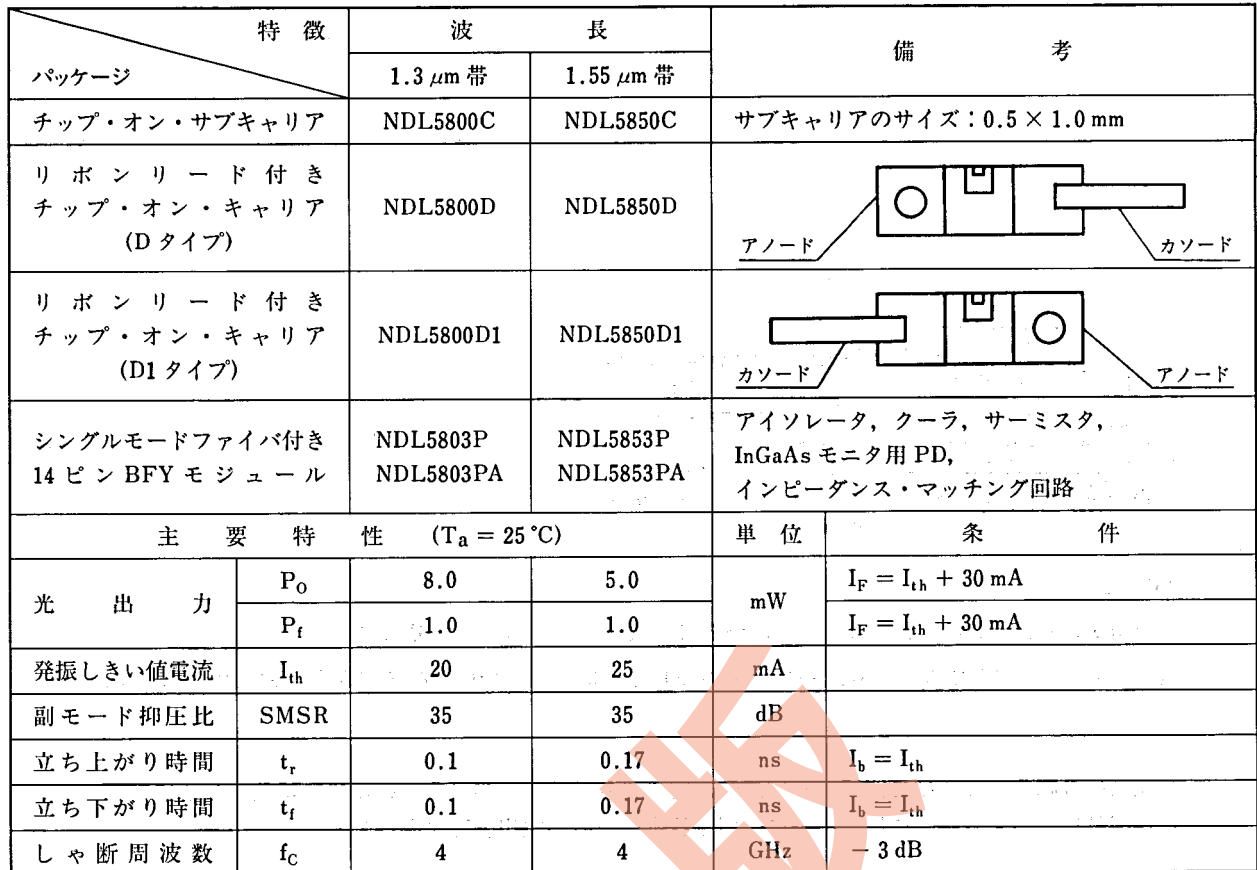 特 徴
波 長
備 考
パッケージ
1.3 μm 帯
1.55 μm 帯
チップ・オン・サブキャリア
NDL5800C
NDL5850C
サブキャリアのサイズ：0.5 × 1.0 mm
リボンリード付き
チップ・オン・キャリア
(D タイプ)
NDL5800D
NDL5850D
アノード
カソード
リボンリード付き
チップ・オン・キャリア
(D1 タイプ)
NDL5800D1
NDL5850D1
カソード
アノード
シングルモードファイバ付き
14 ピン BFY モジュール
NDL5803P
NDL5803PA
NDL5853P
NDL5853PA
アイソレータ，クーラ，サーミスタ，
InGaAs モニタ用 PD，
インピーダンス・マッチング回路
主 要 特 性 (Ta = 25 ℃)
単 位
条 件
光 出 力
PO
8.0
5.0
mW
IF = Ith + 30 mA
Pf
1.0
1.0
IF = Ith + 30 mA
発振しきい値電流
Ith
20
25
mA
副モード抑圧比
SMSR
35
35
dB
立ち上がり時間
tr
0.1
0.17
ns
Ib = Ith
立ち下がり時間
tf
0.1
0.17
ns
Ib = Ith
しゃ断周波数
fC
4
4
GHz
− 3 dB
版